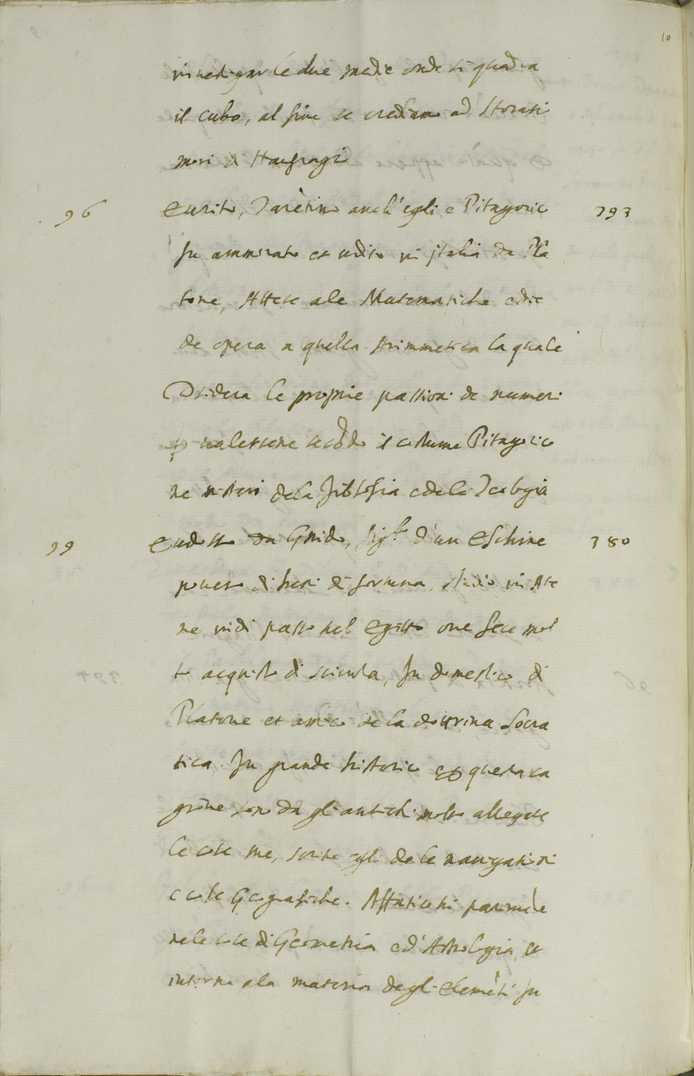 10
due medie onde si quadra
il cubo, al fine se crediamo ad
mori di Naufragio
96 Eurito, Tarètino anch'egli e Pitagorico 393
fu ammirato et udito in Italia da Pla
tone, Attese ale Matematiche e die
de opera a quella Arimmetica la quale
considera le proprie passioni de numeri
valersene secõdo il costume Pitagorico
ne misteri dela filosofia e dela Teologia
99 Eudosso da Gnido, fig.º d'un Eschine 380
povero di beni di fortuna, studiò in Ate
ne indi passò nel Egitto ove fece mol
to acquisto di scienza, fu domestico di
Platone et amico dela dottrina Socra
tica. fu grande historico et per questa ca
gione son da gli antichi molto allegate
le cose sue, scrisse egli dele navigationi
e cose Geografiche. Affaticossi parimente
nele cose di Geometria e d'Astrologia, et
intorno ala materia degli Elemẽti fu